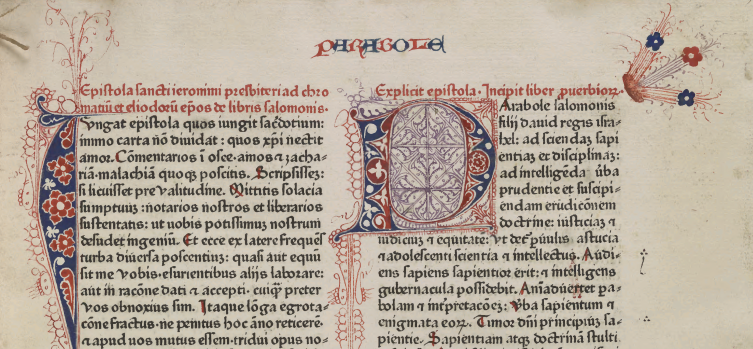 PARABOLE
Epistola sancti ieronimi presbiteri ad chro
matiū et eliodorū epōs de libris salomonis·
Iungat epistola quos iungit sacerdotium:
immo carta nō diuidat: quos xp̄i nectit
amor. Cōmentarios ī osee·amos ⁊ zacha-
riā·malachiā quoqꝫ poscitis. Scripsissez:
si licuisset pre valitudine. Mittitis solacia
sumptuuꝫ: notarios nostros et librarios
sustentatis: ut uobis potissimuꝫ nostrum
desudet ingeniū. Et ecce ex latere frequēs
turba diuersa poscentiuꝫ: quasi aut equū
sit me vobis·esurientibus alijs laborare:
aut in racōne dati ⁊ accepti·cuiqꝫ preter
vos obnoxius sim. Itaque lōga egrota-
cōne fractus·ne penitus hoc āno reticerē·
⁊ apud uos mutus essem·tridui opus no-
Explicit epistola·Incipit liber ꝓuerbioꝝ·
Parabole salomonis
filij dauid regis isra-
hel: ad sciendaꝫ sapi
entiaꝫ et disciplinaꝫ:
ad intelligēda ūba
prudentie et suscipi-
endam erudicōnem
doctrine: iusticiaꝫ ⁊
iudiciuꝫ ⁊ equitatē: vt det̄ ꝑuulis astucia
⁊adolescenti scientia ⁊ intellectus. Audi-
ens sapiens sapientior erit: ⁊ intelligens
gubernacula possidebit. Aīaduertet pa-
bolam ⁊ īnterpretacōeꝫ: Vba sapientum ⁊
enigmata eoꝝ. Timor dn̄i principiuꝫ sa-
pientie. Sapientiam atqꝫ doctrinā stulti